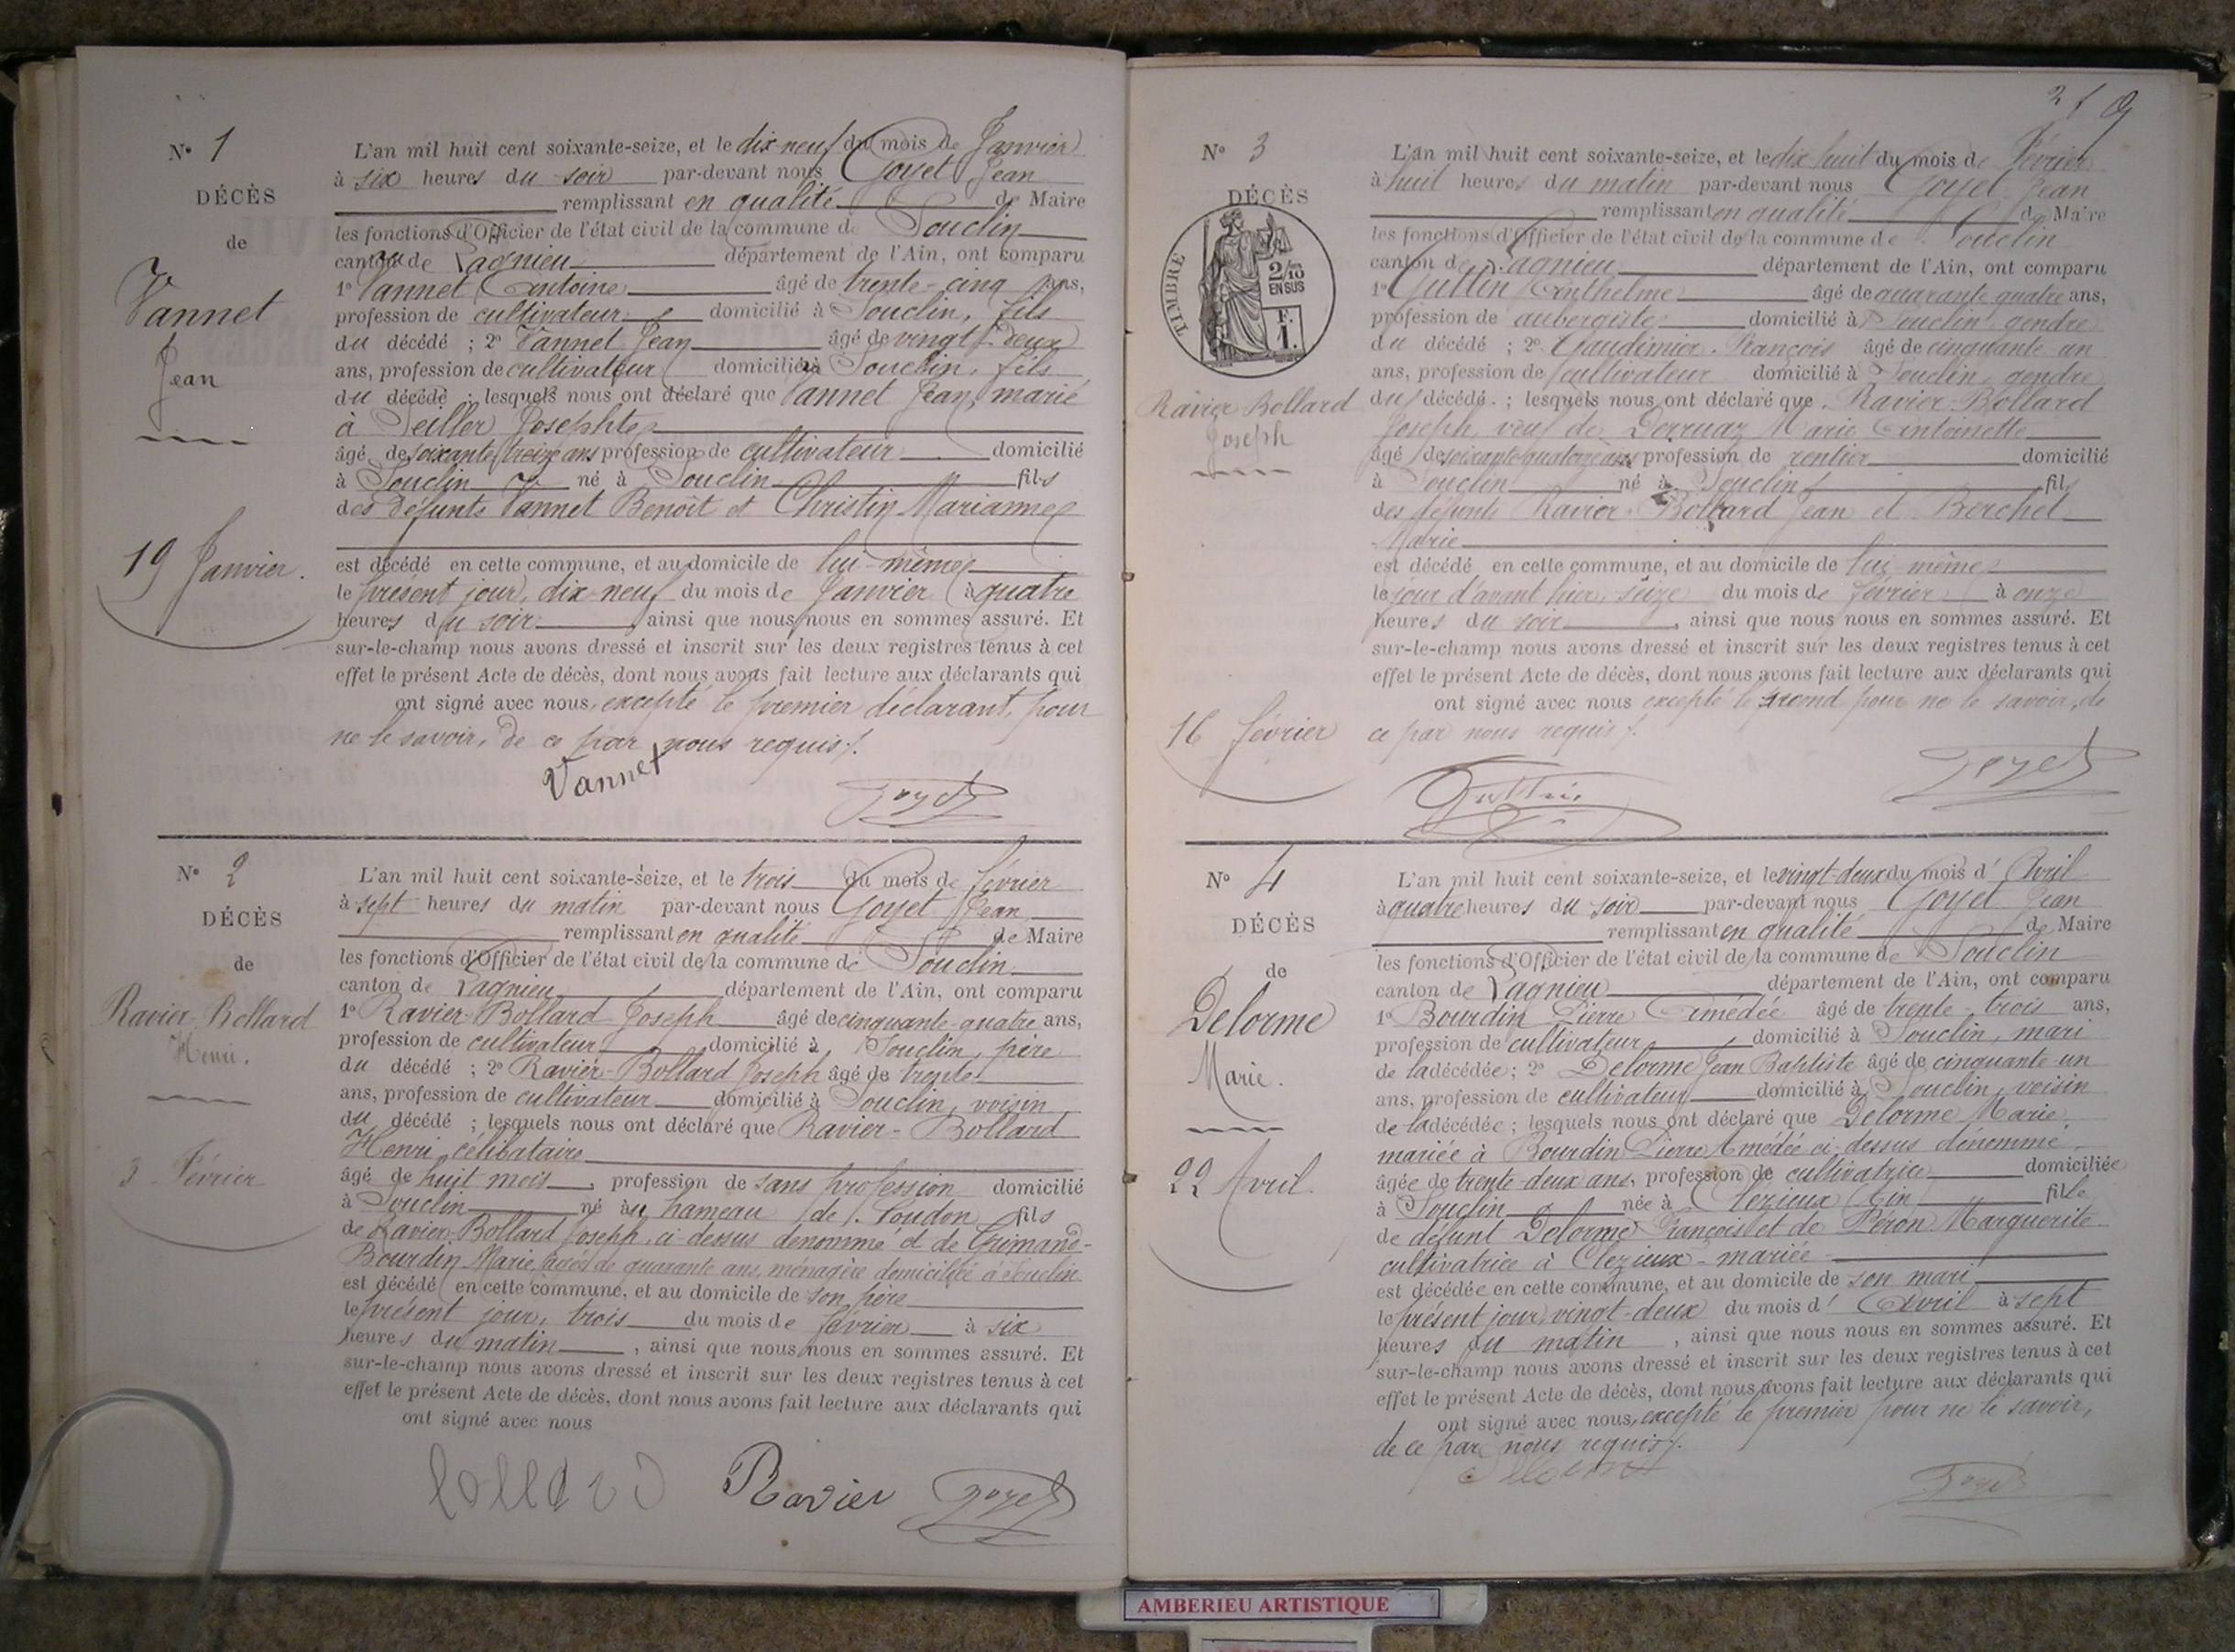 N° 1
DÉCÈS
de
Vannet
Jean
19 Janvier.
L'an mil huit cent soixante-seize, et le dix-neuf du mois de Janvier
à six heures du soir par-devant nous Goyet Jean
remplissant en qualité de Maire
les fonctions d'Officier de l'état civil de la commune de Souclin
canton de Lagnieu département de l'Ain, ont comparu
1° Vannet Antoine âgé de trente-cinq ans,
profession de cultivateur domicilié à Souclin, fils
du décédé ; 2° Vannet Jean âgé de vingt-deux
ans, profession de cultivateur domicilié à Souclin, fils
du décédé ; lesquels nous ont déclaré que Vannet Jean, marié
à Seiller Josephte
âgé de soixante treize ans profession de cultivateur domicilié
à Souclin né à Souclin fils
des défunts Vannet Benoît et Christin Marianne
est décédé en cette commune, et au domicile de lui-même
le présent jour, dix-neuf du mois de Janvier à quatre
heures du soir ainsi que nous nous en sommes assuré. Et
sur-le-champ nous avons dressé et inscrit sur les deux registres tenus à cet
effet le présent Acte de décès, dont nous avons fait lecture aux déclarants qui
ont signé avec nous, excepté le premier déclarant, pour
ne le savoir, de ce par nous requis.
Vannet
Goyet
N° 2
DÉCÈS
de
Ravier-Bollard
Henri.
3 Février
L'an mil huit cent soixante-seize, et le trois du mois de février
à sept heures du matin par-devant nous Goyet Jean
remplissant en qualité de Maire
les fonctions d'Officier de l'état civil de la commune de Souclin
canton de Lagnieu département de l'Ain, ont comparu
1° Ravier-Bollard Joseph âgé de cinquante-quatre ans,
profession de cultivateur domicilié à Souclin, père
du décédé ; 2° Ravier-Bollard Joseph âgé de trente
ans, profession de cultivateur domicilié à Souclin, voisin
du décédé ; lesquels nous ont déclaré que Ravier-Bollard
Henri, célibataire
âgé de huit mois, profession de sans profession domicilié
à Souclin né au hameau de Soudon fils
de Ravier-Bollard Joseph, ci-dessus dénommé et de Grimand-
Bourdin Marie, âgée de quarante ans, ménagère domiciliée à Souclin
est décédé en cette commune, et au domicile de son père
le présent jour, trois du mois de février à six
heures du matin, ainsi que nous nous en sommes assuré. Et
sur-le-champ nous avons dressé et inscrit sur les deux registres tenus à cet
effet le présent Acte de décès, dont nous avons fait lecture aux déclarants qui
ont signé avec nous
Bollard Ravier Goyet
N° 3
DÉCÈS
TIMBRE
2/10
EN SUS
F.
1.
Ravier Bollard
Joseph
16 février
L'an mil huit cent soixante-seize, et le dix huit du mois de Février
à huit heures du matin par-devant nous Goyet Jean
remplissant en qualité de Maire
les fonctions d'Officier de l'état civil de la commune de Souclin
canton de Lagnieu département de l'Ain, ont comparu
1° Guttin Anthelme âgé de quarante quatre ans,
profession de aubergiste domicilié à Souclin gendre
du décédé ; 2° Gaudimier François âgé de cinquante-un
ans, profession de cultivateur domicilié à Souclin, gendre
du décédé. ; lesquels nous ont déclaré que Ravier-Bollard
Joseph, veuf de Derruaz Marie Antoinette
âgé de soixante quatorze ans profession de rentier domicilié
à Souclin né à Souclin fils
des défunts Ravier-Bollard Jean et Berchet
Marie
est décédé en cette commune, et au domicile de lui-même
le jour d'avant hier, seize du mois de février à onze
heures du soir, ainsi que nous nous en sommes assuré. Et
sur-le-champ nous avons dressé et inscrit sur les deux registres tenus à cet
effet le présent Acte de décès, dont nous avons fait lecture aux déclarants qui
ont signé avec nous excepté le second pour ne le savoir, de
ce par nous requis.
Guttin
Goyet
N° 4
DÉCÈS
de
Delorme
Marie.
22 Avril.
L'an mil huit cent soixante-seize, et le vingt-deux du mois d'Avril
à quatre heures du soir par-devant nous Goyet Jean
remplissant en qualité de Maire
les fonctions d'Officier de l'état civil de la commune de Souclin
canton de Lagnieu département de l'Ain, ont comparu
1° Bourdin Pierre Amédée âgé de trente-trois ans,
profession de cultivateur domicilié à Souclin, mari
de la décédée ; 2° Delorme Jean Baptiste âgé de cinquante un
ans, profession de cultivateur domicilié à Souclin, voisin
de la décédée ; lesquels nous ont déclaré que Delorme Marie,
mariée à Bourdin Pierre Amédée ci-dessus dénommé,
âgée de trente-deux ans, profession de cultivatrice domiciliée
à Souclin née à Clezieux (Ain) fille
de défunt Delorme François et de Péron Marguerite
cultivatrice à Clezieux - mariée
est décédée en cette commune, et au domicile de son mari
le présent jour, vingt-deux du mois d'Avril à sept
heures du matin, ainsi que nous nous en sommes assuré. Et
sur-le-champ nous avons dressé et inscrit sur les deux registres tenus à cet
effet le présent Acte de décès, dont nous avons fait lecture aux déclarants qui
ont signé avec nous, excepté le premier pour ne le savoir,
de ce par nous requis.
Goyet
AMBERIEU ARTISTIQUE